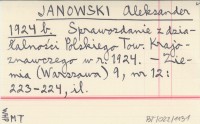 JANOWSKI Aleksander
1924 b. Sprawozdanie z dzia-
łalności Polskiego Tow. Krajo-
znawczego w r. 1924. – Zie-
mia (Warszawa) 9, nr 12:
223-224, il.
MT